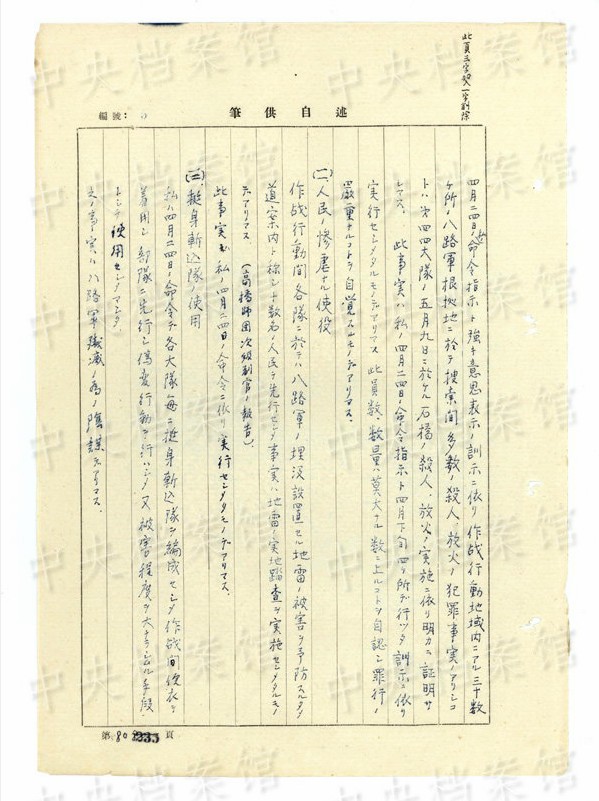 此頁三字改一字刪除
編號: 5
筆供自述
四月二四日命令指示ト強キ意思表示ノ訓示ニ依リ作战行動地域内ニアル三十数
ケ所ノ八路軍根拠地ニ於テ捜索間多数ノ殺人、放火ノ犯罪事実ノアリシコ
トハ 四四大隊ノ五月九日ニ於ケル石橋ノ殺人、放火ノ実施ニ依リ明カニ証明サ
レマス。 此事実ハ私ノ四月二四日ノ命令指示ト四月下旬四ケ所デ行ッタ訓示ニ依リ
実行センメタルモノデアリマス 此員数、数量ハ莫大ナル数ニ上ルコトヲ自認シ罪行ノ
嚴重ナルコトヲ自覚スルモノデアリマス。
(二)、人民ノ惨虐ナル使役
作战行動間各隊ニ於テハ八路軍ノ埋没設置セル地雷ノ被害ヲ予防スル為
道案内ト称シ十数名ノ人民ヲ先行センメ事実ハ地雷ノ実地踏査ヲ実施センメタルモノ
デアリマス (高橋師团次級副官ノ報告)
此事実モ私ノ四月二四日ノ命令ニ依リ実行センメタモノデアリマス。
(三)、挺身斬込隊ノ使用
私ハ四月二四日ノ命令デ各大隊毎ニ挺身斬込隊ヲ編成センメ作战間便衣ヲ
着用シ部隊ニ先行シ偽変行動ヲ行ハンメ又被害程度ヲ大ナラシムル手段
トシテ使用センメマシタ。
之ノ事実ハ八路軍殲滅ノ為ノ陰謀デアリマス。
第 80 235 頁
中央档案馆